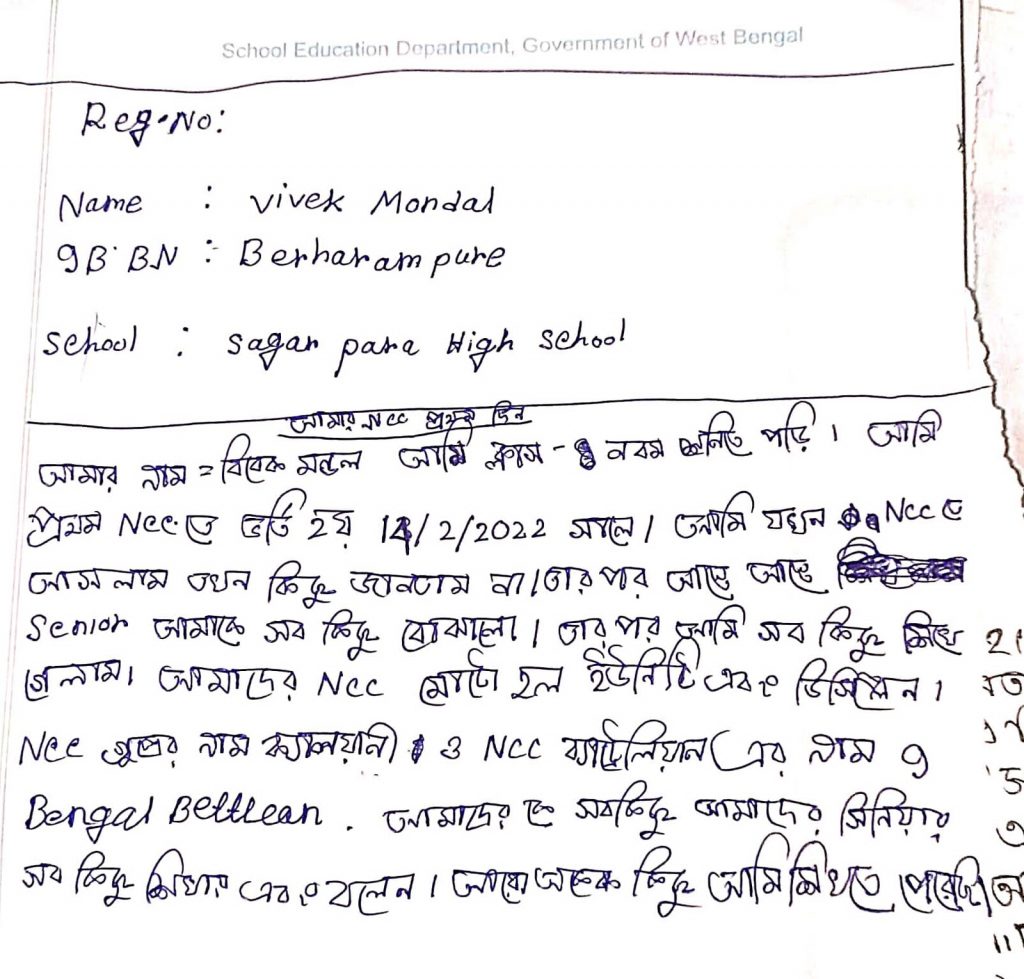 School Education Department, Government of West Bengal
Reg·No:
Name : Vivek Mondal
9B·BN : Berharampure
School : Sagar para High School
আমার NCC প্রথম দিন
আমার নাম = বিবেক মন্ডল আমি ক্লাস - নবম শ্রনিতে পড়ি। আমি
প্রথম Ncc তে ভর্তি হয় 14/2/2022 সালে। আমি যখন Ncc তে
আসলাম তখন কিছু জানতাম না। তার পর আস্তে আস্তে
Senior আমাকে সব কিছু বোঝালো। তার পর আমি সব কিছু শিখে
গেলাম। আমাদের Ncc মোটো হল ইউনিটি এবং ডিসিপ্লিন।
Ncc গ্রুপের নাম ক্যালয়ানী ও NCC ব্যাটেলিয়ান এর নাম 9
Bengal Bettlean . আমাদের কে সবকিছু আমাদের সিনিয়ার
সব কিছু শিখায় এবং বলেন। আরো অনেক কিছু আমি শিখতে পেরেছি।